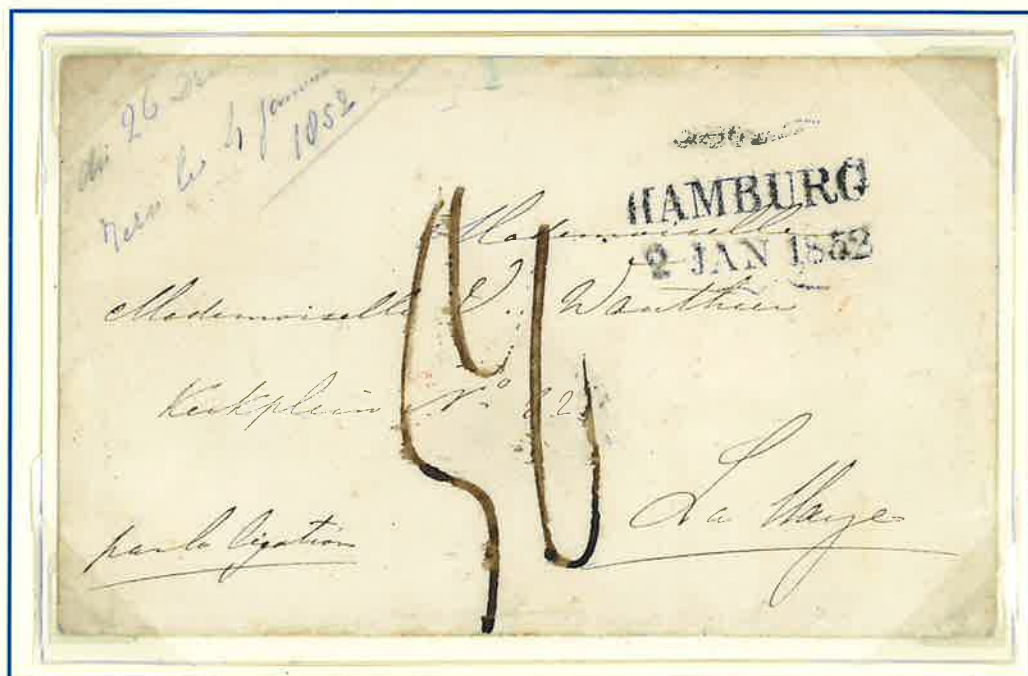 du 26 De
le 4 Janvier
1852
HAMBURG
2 JAN 1852
Mademoiselle
Mademoiselle V. Wauthier
Kerkplein No. 22
La Haye
par la légation